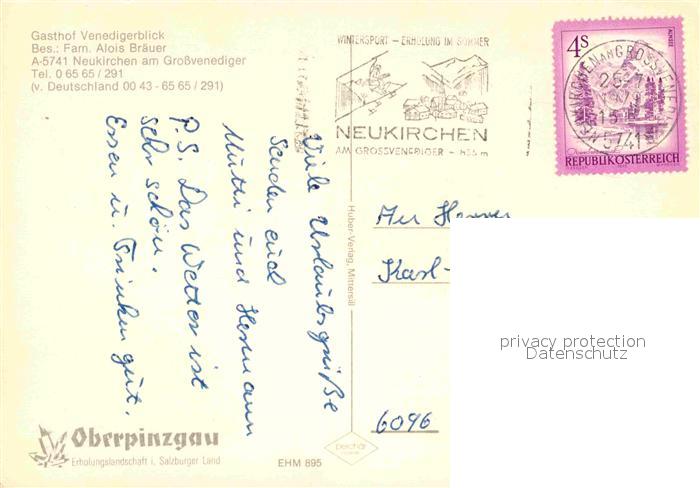 Gasthof Venedigerblick
Bes.: Fam. Alois Bräuer
A-5741 Neukirchen am Großvenediger
Tel. 0 65 65 / 291
(v. Deutschland 00 43 - 65 65 / 291)
WINTERSPORT - ERHOLUNG IM SOMMER
NEUKIRCHEN
AM GROSSVENEDIGER - 856 m
4S
REPUBLIK ÖSTERREICH
NEUKIRCHEN AM GROSSVENEDIGER
5741
Viele Urlaubsgrüße
senden euch
Mutti und Hermann
P.S. Das Wetter ist
sehr schön.
Essen u. Trinken gut.
Huber-Verlag, Mittersill
Karl-
6096
privacy protection
Datenschutz
Oberpinzgau
Erholungslandschaft i. Salzburger Land
EHM 895